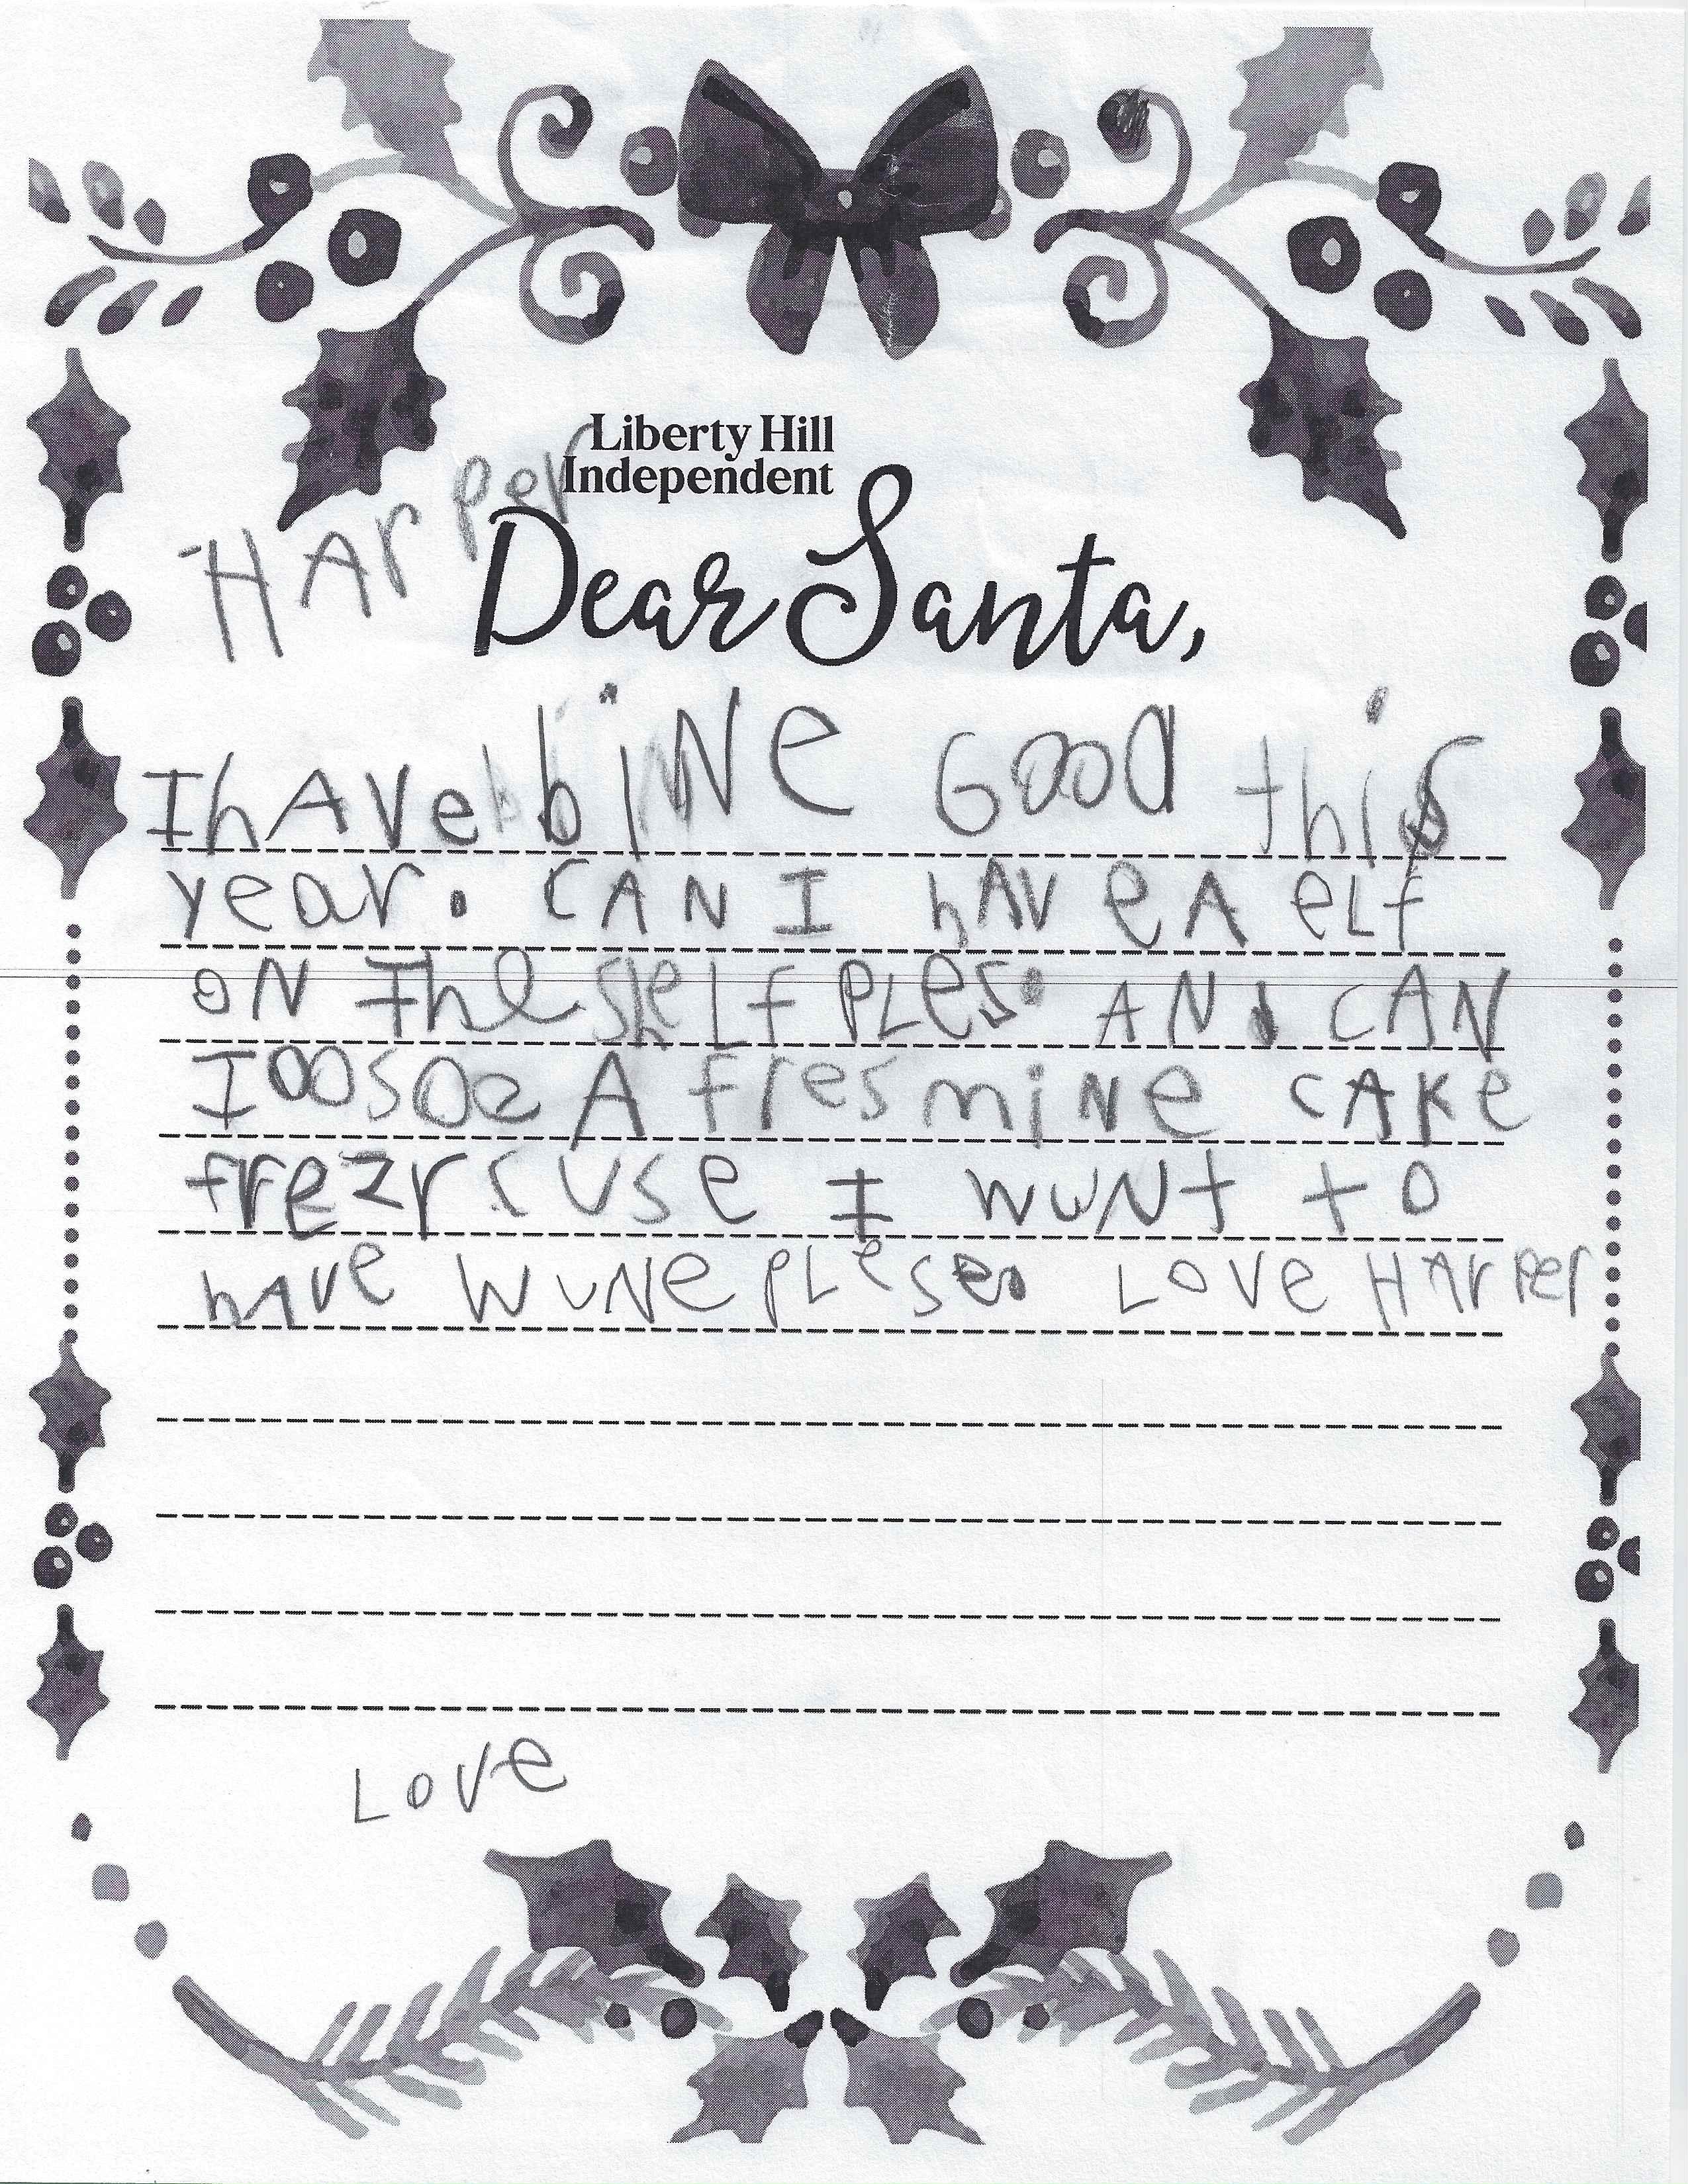 Liberty Hill
Independent
HArper
Dear Santa,
I hAVe biNe Good this
year. CAN I hAVe A eLf
oN The sheLf PLes. AN CAN
I oosoe A fres miNe CAKe
frezr cuse I wuNt to
hAve wuNe pLese. Love HArper
Love